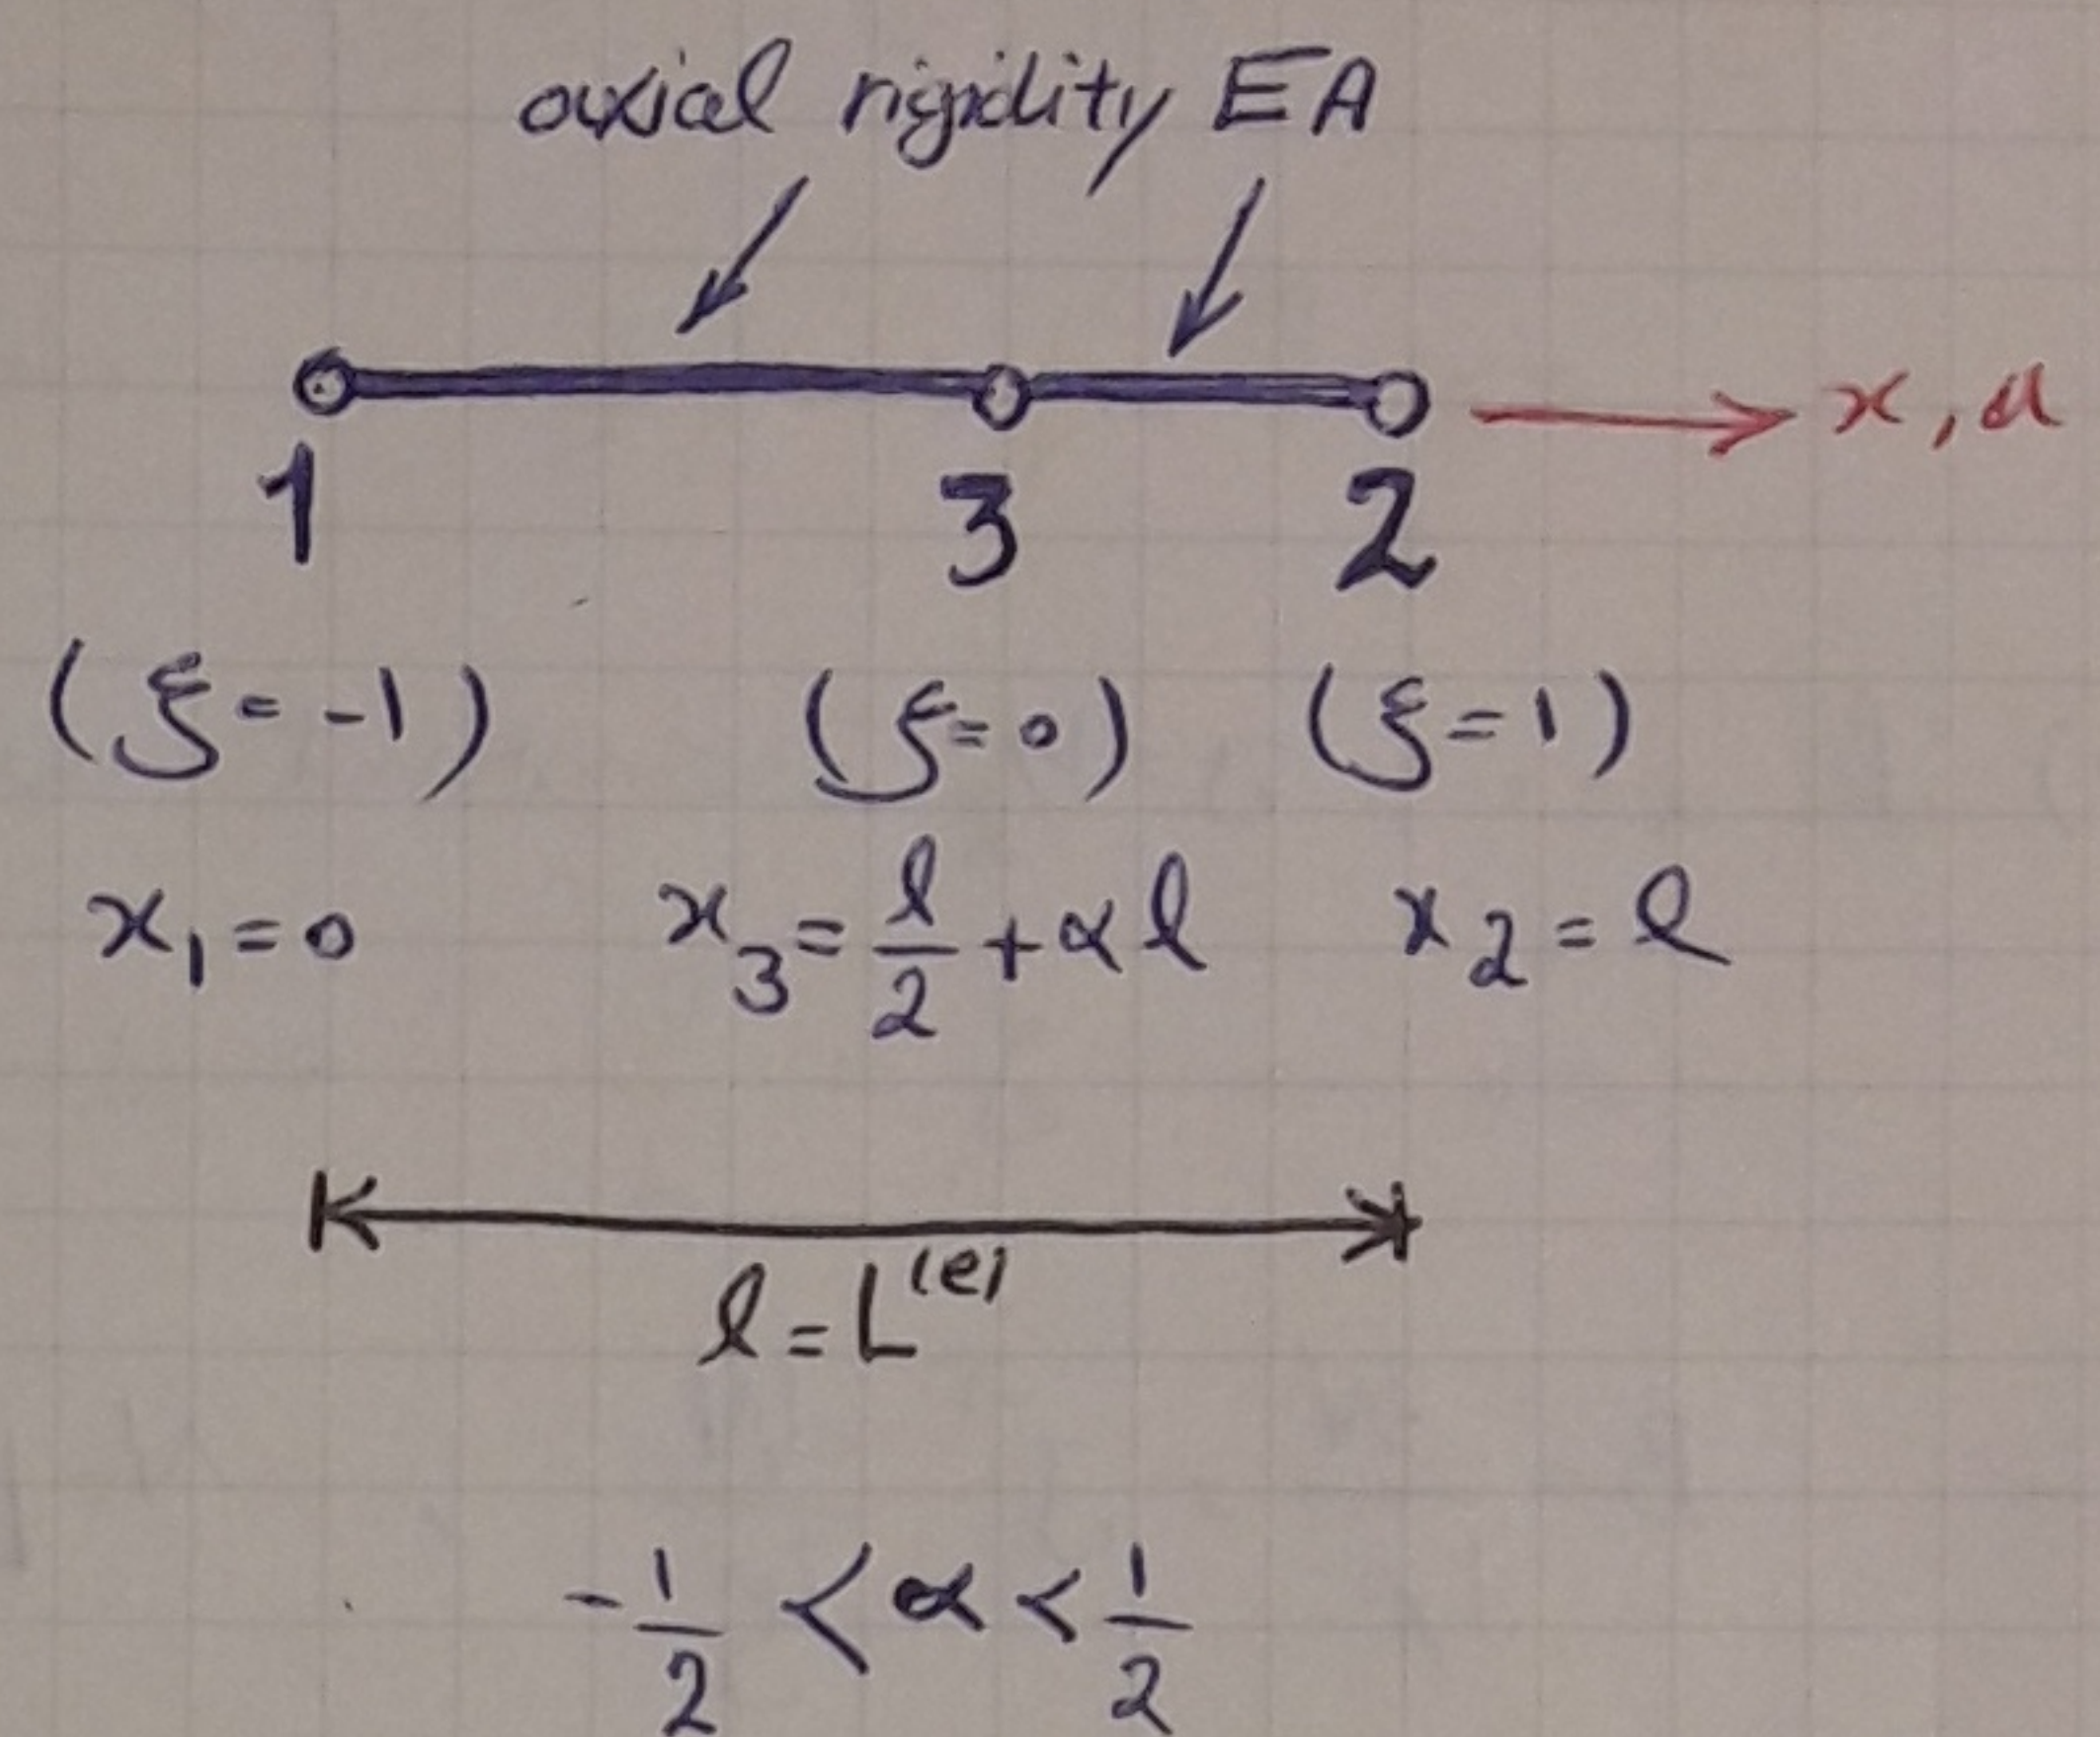 axial rigidity EA
x, u
1 3 2
(ξ = -1) (ξ = 0) (ξ = 1)
x₁ = 0 x₃ = l/2 + αl x₂ = l
l = L⁽ᵉ⁾
-1/2 < α < 1/2